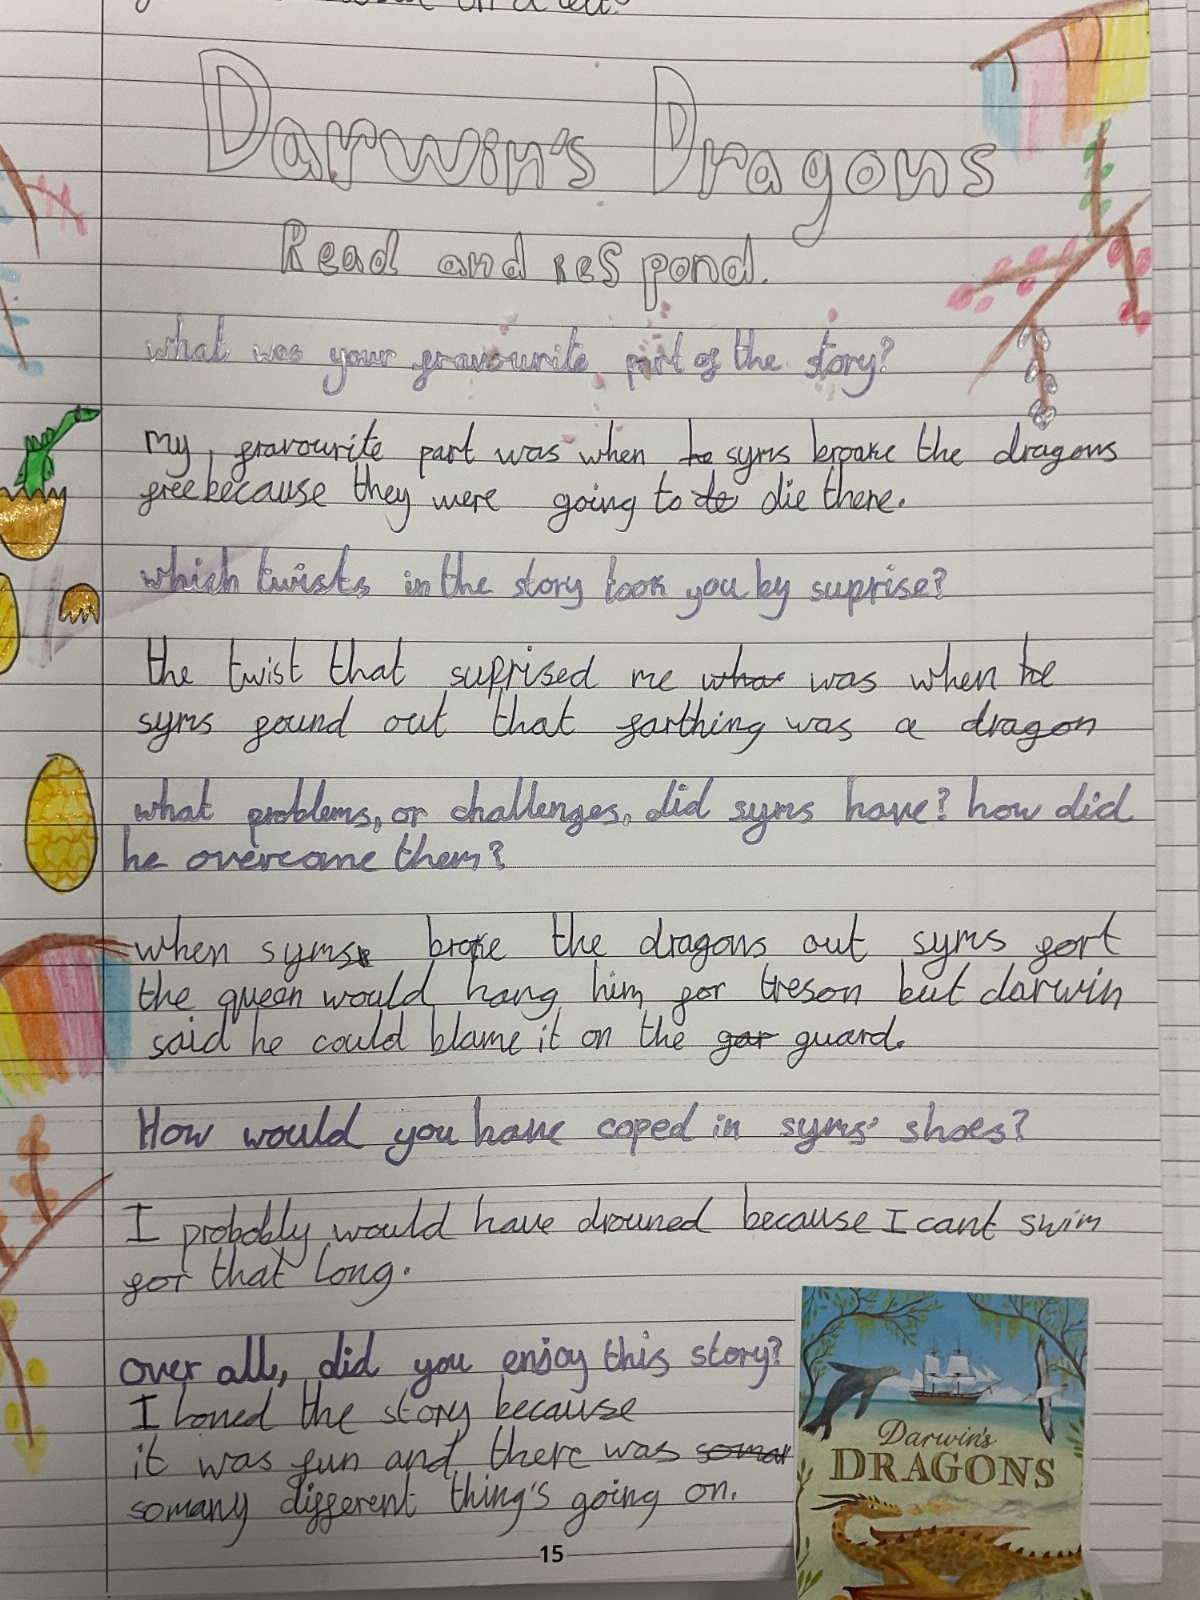 Darwin's Dragons
Read and respond.
what was your favourite part of the story?
my favourite part was when he syms broake the dragons
free because they were going to to die there.
which twists in the story took you by suprise?
the twist that suprised me what was when he
syms found out that farthing was a dragon
what problems, or challenges, did syms have? how did
he overcome them?
when syms broke the dragons out syms fort
the queen would hang him for treson but darwin
said he could blame it on the gar guard.
How would you have coped in syms' shoes?
I probobly would have drouned because I cant swim
for that long.
over all, did you enjoy this story?
I loved the story because
it was fun and there was somar
somany different thing's going on.
Darwin's
DRAGONS
15